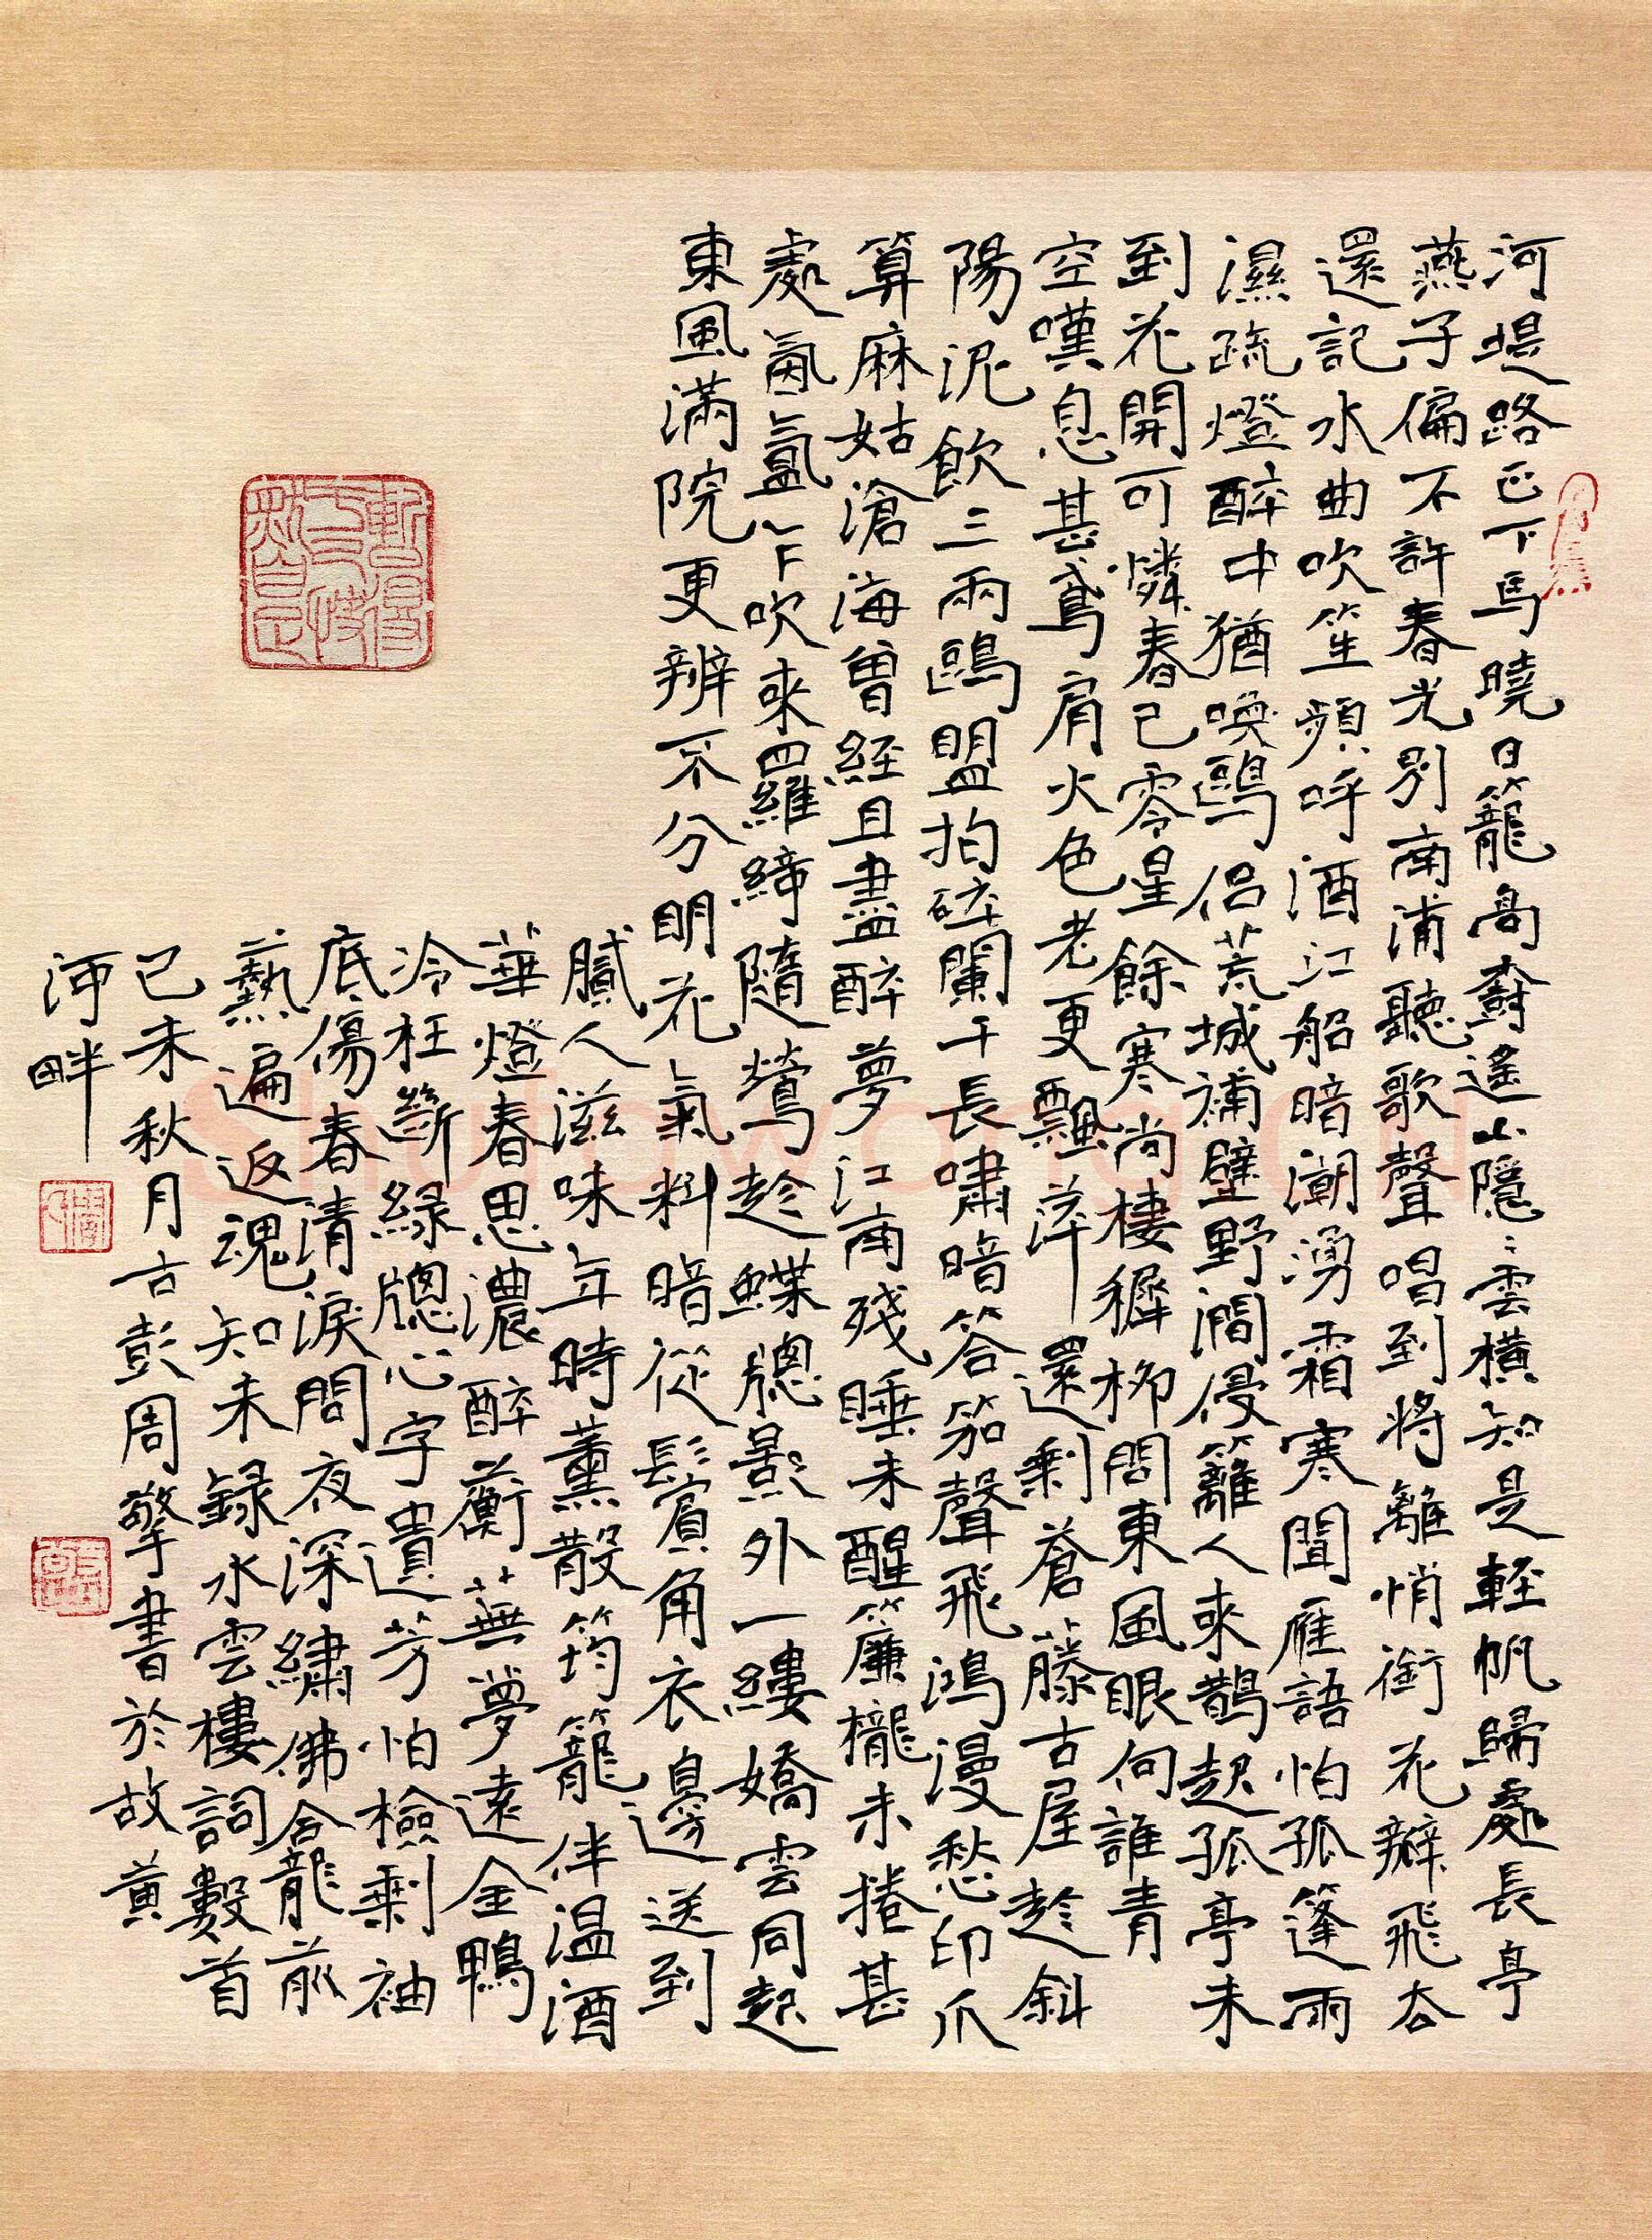 河堤路正下馬曉日籠高樹遙山隱〻雲橫知是輕帆歸處長亭
燕子偏不許春光別南浦聽歌聲唱到將離悄銜花瓣飛去
還記水曲吹笙頻呼酒江船暗潮湧霜寒聞雁語怕孤篷雨
濕疏燈醉中猶喚鷗侶荒城補壁野澗侵籬人來鵲起孤亭未
到花開可憐春已零星餘寒尚棲穉柳問東風眼向誰青
空嘆息甚鳶肩火色老更飄萍還剩蒼藤古屋趁斜
陽泥飲三兩鷗盟拍碎闌干長嘯暗答笳聲飛鴻漫愁印爪
算麻姑滄海曾經且盡醉夢江南殘睡未醒簾櫳未捲甚
處氤氳乍吹來羅締隨鶯趁蝶牕影外一縷嬌雲同起
東風滿院更辨不分明花氣料暗從鬢角衣邊送到
膩人滋味年時薰散筠籠伴温酒
華燈春思濃醉蘅蕪夢遠金鴨
冷枉斷緑牕心字遺芳怕檢剩袖
底傷春清淚問夜深繡佛龕前
爇遍返魂知未録水雲樓詞數首
己未秋月古彭周擎書於故黄
河畔